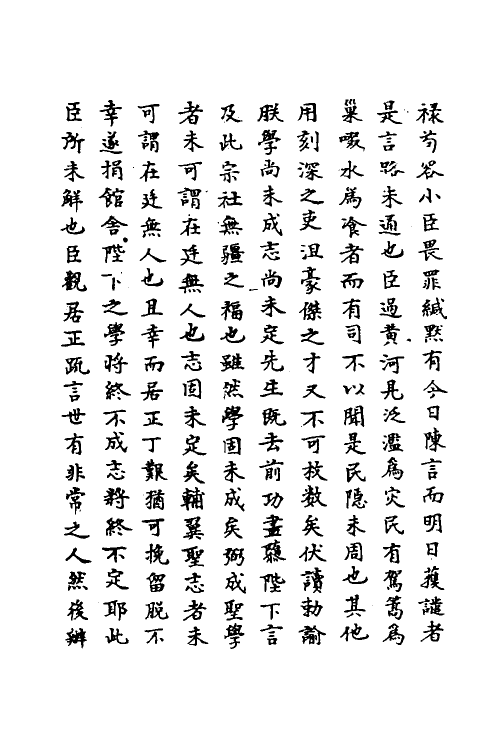 禄苟容小臣畏罪緘默有今日陳言而明日獲譴者
是言路未通也臣過黄河見泛濫為灾民有駕蒿為
巢啜水為飡者而有司不以聞是民隐未周也其他
用刻深之吏沮豪傑之才又不可枚数矣伏讀勅諭
朕學尚未成志尚未定先生既去前功盡隳陛下言
及此宗社無疆之福也雖然學固未成矣弼成聖學
者未可謂在廷無人也志固未定矣輔翼聖志者未
可謂在廷無人也且幸而居正丁艱猶可挽留脱不
幸遂捐館舍陛下之學将終不成志將終不定耶此
臣所未觧也臣觀居正疏言世有非常之人然後辦